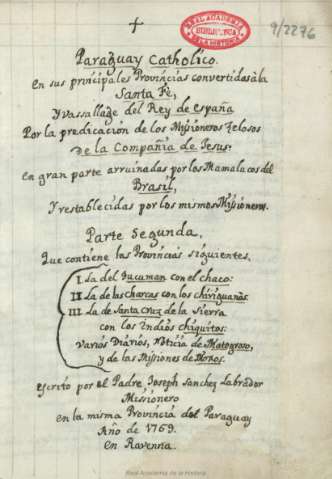 REAL ACADEMIA
BIBLIOTECA
DE LA HISTORIA
9/2276
Paraguay Catholico.
En sus principales Provincias convertidas à la
Santa Fè,
Y vassallage del Rey de España
Por la predicacion de los Missioneros Zelosos
De la Compañia de Jesus.
En gran parte arruinadas por los Mamalucos del
Brasil,
Y restablecidas por los mismos Missioneros.
Parte Segunda.
Que contiene las Provincias siguientes.
I. La del Tucuman con el chaco:
II La de las charcas con los chiriguanàs.
III. La de Santa Cruz de la Sierra
con los Indios chiquitos:
varios Diarios, Noticia de Matogroso,
y de las Missiones de Moxos.
Escrito por el Padre Joseph Sanchez Labrador
Missionero
en la misma Provincia del Paraguay
Año de 1769.
En Ravenna.
Real Academia de la Historia